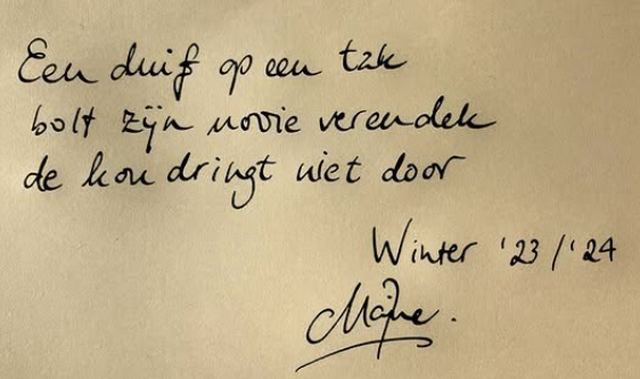 Een duif op een tak
bolt zijn mooie verendek
de kou dringt niet door
Winter '23 / '24